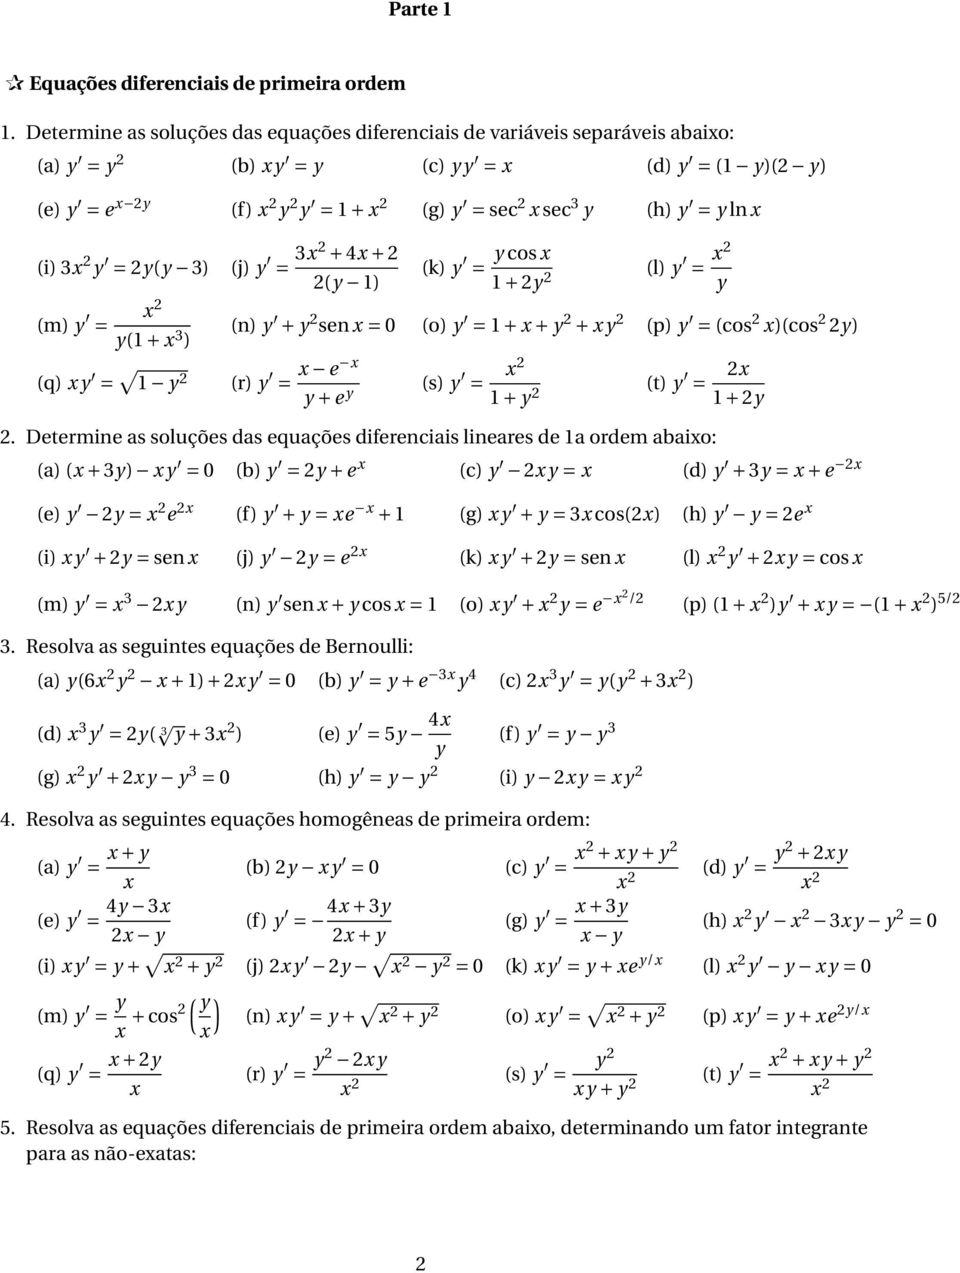 Parte 1
✰ Equações diferenciais de primeira ordem
1. Determine as soluções das equações diferenciais de variáveis separáveis abaixo:
(a) y′ = y² (b) xy′ = y (c) yy′ = x (d) y′ = (1 − y)(2 − y)
(e) y′ = e^{x−2y} (f) x²y²y′ = 1 + x² (g) y′ = sec² x sec³ y (h) y′ = y ln x
(i) 3x²y′ = 2y(y − 3) (j) y′ = \frac{3x² + 4x + 2}{2(y − 1)} (k) y′ = \frac{y cos x}{1 + 2y²} (l) y′ = \frac{x²}{y}
(m) y′ = \frac{x²}{y(1 + x³)} (n) y′ + y² sen x = 0 (o) y′ = 1 + x + y² + xy² (p) y′ = (cos² x)(cos² 2y)
(q) xy′ = \sqrt{1 − y²} (r) y′ = \frac{x − e^{−x}}{y + e^{y}} (s) y′ = \frac{x²}{1 + y²} (t) y′ = \frac{2x}{1 + 2y}
2. Determine as soluções das equações diferenciais lineares de 1a ordem abaixo:
(a) (x + 3y) − xy′ = 0 (b) y′ = 2y + e^{x} (c) y′ − 2xy = x (d) y′ + 3y = x + e^{−2x}
(e) y′ − 2y = x²e^{2x} (f) y′ + y = xe^{−x} + 1 (g) xy′ + y = 3x cos(2x) (h) y′ − y = 2e^{x}
(i) xy′ + 2y = sen x (j) y′ − 2y = e^{2x} (k) xy′ + 2y = sen x (l) x²y′ + 2xy = cos x
(m) y′ = x³ − 2xy (n) y′ sen x + y cos x = 1 (o) xy′ + x²y = e^{−x²/2} (p) (1 + x²)y′ + xy = −(1 + x²)^{5/2}
3. Resolva as seguintes equações de Bernoulli:
(a) y(6x²y² − x + 1) + 2xy′ = 0 (b) y′ = y + e^{−3x}y⁴ (c) 2x³y′ = y(y² + 3x²)
(d) x³y′ = 2y(\sqrt[3]{y} + 3x²) (e) y′ = 5y − \frac{4x}{y} (f) y′ = y − y³
(g) x²y′ + 2xy − y³ = 0 (h) y′ = y − y² (i) y − 2xy = xy²
4. Resolva as seguintes equações homogêneas de primeira ordem:
(a) y′ = \frac{x + y}{x} (b) 2y − xy′ = 0 (c) y′ = \frac{x² + xy + y²}{x²} (d) y′ = \frac{y² + 2xy}{x²}
(e) y′ = \frac{4y − 3x}{2x − y} (f) y′ = −\frac{4x + 3y}{2x + y} (g) y′ = \frac{x + 3y}{x − y} (h) x²y′ − x² − 3xy − y² = 0
(i) xy′ = y + \sqrt{x² + y²} (j) 2xy′ − 2y − \sqrt{x² − y²} = 0 (k) xy′ = y + xe^{y/x} (l) x²y′ − y − xy = 0
(m) y′ = \frac{y}{x} + cos² (\frac{y}{x}) (n) xy′ = y + \sqrt{x² + y²} (o) xy′ = \sqrt{x² + y²} (p) xy′ = y + xe^{2y/x}
(q) y′ = \frac{x + 2y}{x} (r) y′ = \frac{y² − 2xy}{x²} (s) y′ = \frac{y²}{xy + y²} (t) y′ = \frac{x² + xy + y²}{x²}
5. Resolva as equações diferenciais de primeira ordem abaixo, determinando um fator integrante
para as não-exatas:
2